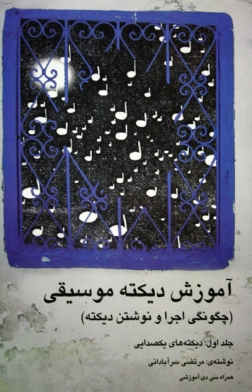 آموزش دیکته موسیقی
(چگونگی اجرا و نوشتن دیکته)
جلد اول: دیکته‌های یکصدایی
نوشته‌ی: مرتضی سرآبادانی
همراه سی دی آموزشی